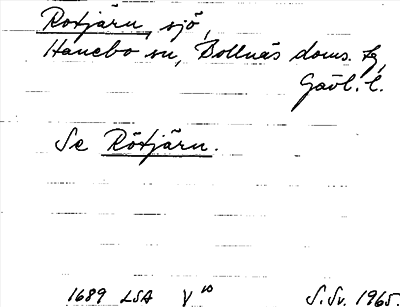 Rotjärn, sjö,
Hanebo sn, Bollnäs doms. tg,
Gävl. l.
Se Rötjärn.
1689 LSA V 10 S. Sv. 1965.